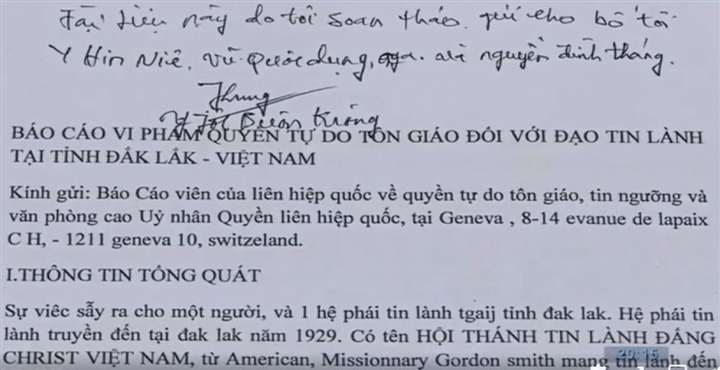 Tài liệu này do tôi soạn thảo, gửi cho bố tôi
Y Hin Niê, vũ quốc dụng, và nguyễn đình thắng.
Y Jôl Buôn Krông
BÁO CÁO VI PHẠM QUYỀN TỰ DO TÔN GIÁO ĐỐI VỚI ĐẠO TIN LÀNH
TẠI TỈNH ĐẮK LẮK - VIỆT NAM
Kính gửi: Báo Cáo viên của liên hiệp quốc về quyền tự do tôn giáo, tin ngưỡng và
văn phòng cao Uỷ nhân Quyền liên hiệp quốc, tại Geneva , 8-14 evanue de lapaix
C H, - 1211 geneva 10, switzeland.
I.THÔNG TIN TỔNG QUÁT
Sự viêc sẫy ra cho một người, và 1 hệ phái tin lành tgaij tỉnh đak lak. Hệ phái tin
lành truyền đến tại đak lak năm 1929. Có tên HỘI THÁNH TIN LÀNH ĐẤNG
CHRIST VIỆT NAM, từ American, Missionnary Gordon smith mang tin lành đến